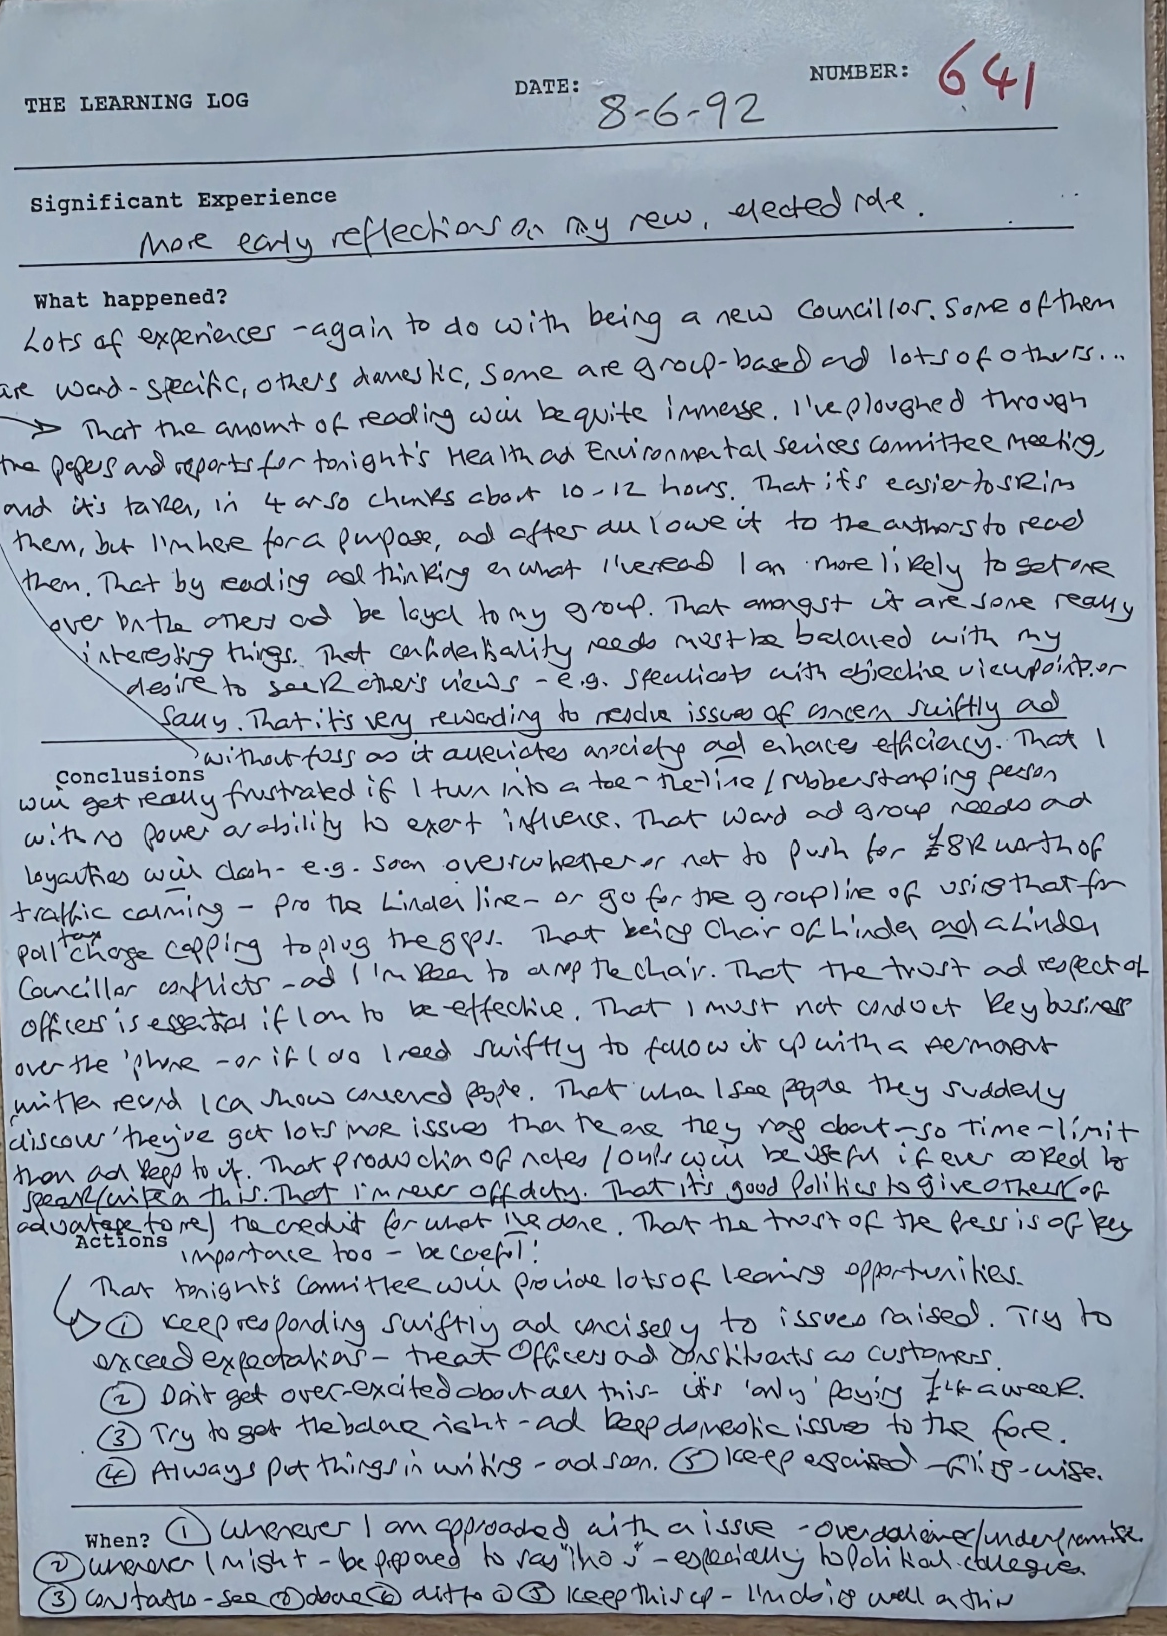 THE LEARNING LOG
DATE: 8-6-92
NUMBER: 641
Significant Experience
More early reflections on my new, elected role.
What happened?
Lots of experiences - again to do with being a new Councillor. Some of them
are ward-specific, others domestic, some are group-based and lots of others...
→ That the amount of reading will be quite immense. I've ploughed through
the papers and reports for tonight's Health and Environmental Services Committee Meeting,
and it's taken, in 4 or so chunks about 10-12 hours. That it's easier to skim
them, but I'm here for a purpose, and after all I owe it to the authors to read
them. That by reading and thinking on what I've read I am more likely to set one
over on the others and be loyal to my group. That amongst it are some really
interesting things. That confidentiality needs must be balanced with my
desire to seek other's views - e.g. specialists with objective viewpoints or
Sally. That it's very rewarding to resolve issues of concern swiftly and
without fuss as it alleviates anxiety and enhances efficiency. That I
Conclusions
will get really frustrated if I turn into a toe-the-line/rubber stamping person
with no power or ability to exert influence. That ward and group needs and
loyalties will clash - e.g. soon over whether or not to push for £8K worth of
traffic calming - pro the Linden line - or go for the group line of using that for
poll tax charge capping to plug the gaps. That being Chair of Linden and a Linden
Councillor conflicts - and I'm keen to drop the chair. That the trust and respect of
officers is essential if I am to be effective. That I must not conduct key business
over the 'phone - or if I do I need swiftly to follow it up with a permanent
written record I can show concerned people. That when I see people they suddenly
'discover' they've got lots more issues than the one they rang about - so time-limit
them and keep to it. That production of notes/ will be useful if ever asked to
speak/write on this. That I'm never off duty. That it's good politics to give others (of
advantage to me) the credit for what I've done. That the trust of the Press is of key
Actions
importance too - be careful!
That tonight's Committee will provide lots of learning opportunities.
① Keep responding swiftly and concisely to issues raised. Try to
exceed expectations - treat Officers and constituents as customers.
② Don't get over-excited about all this - it's 'only' paying a week.
③ Try to get the balance right - and keep domestic issues to the fore.
④ Always put things in writing - and soon. ⑤ Keep organised - filing-wise.
When? ① Whenever I am approached with an issue - overdeliver/underpromise.
② Whenever I might - be prepared to say "no" - especially to political colleagues.
③ Constantly - see ② above ④ ditto ① ⑤ Keep this up - I'm doing well on this